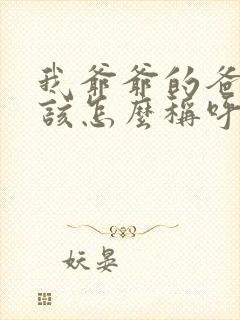 我爺爺的爸
該怎麼稱呼
妖晏